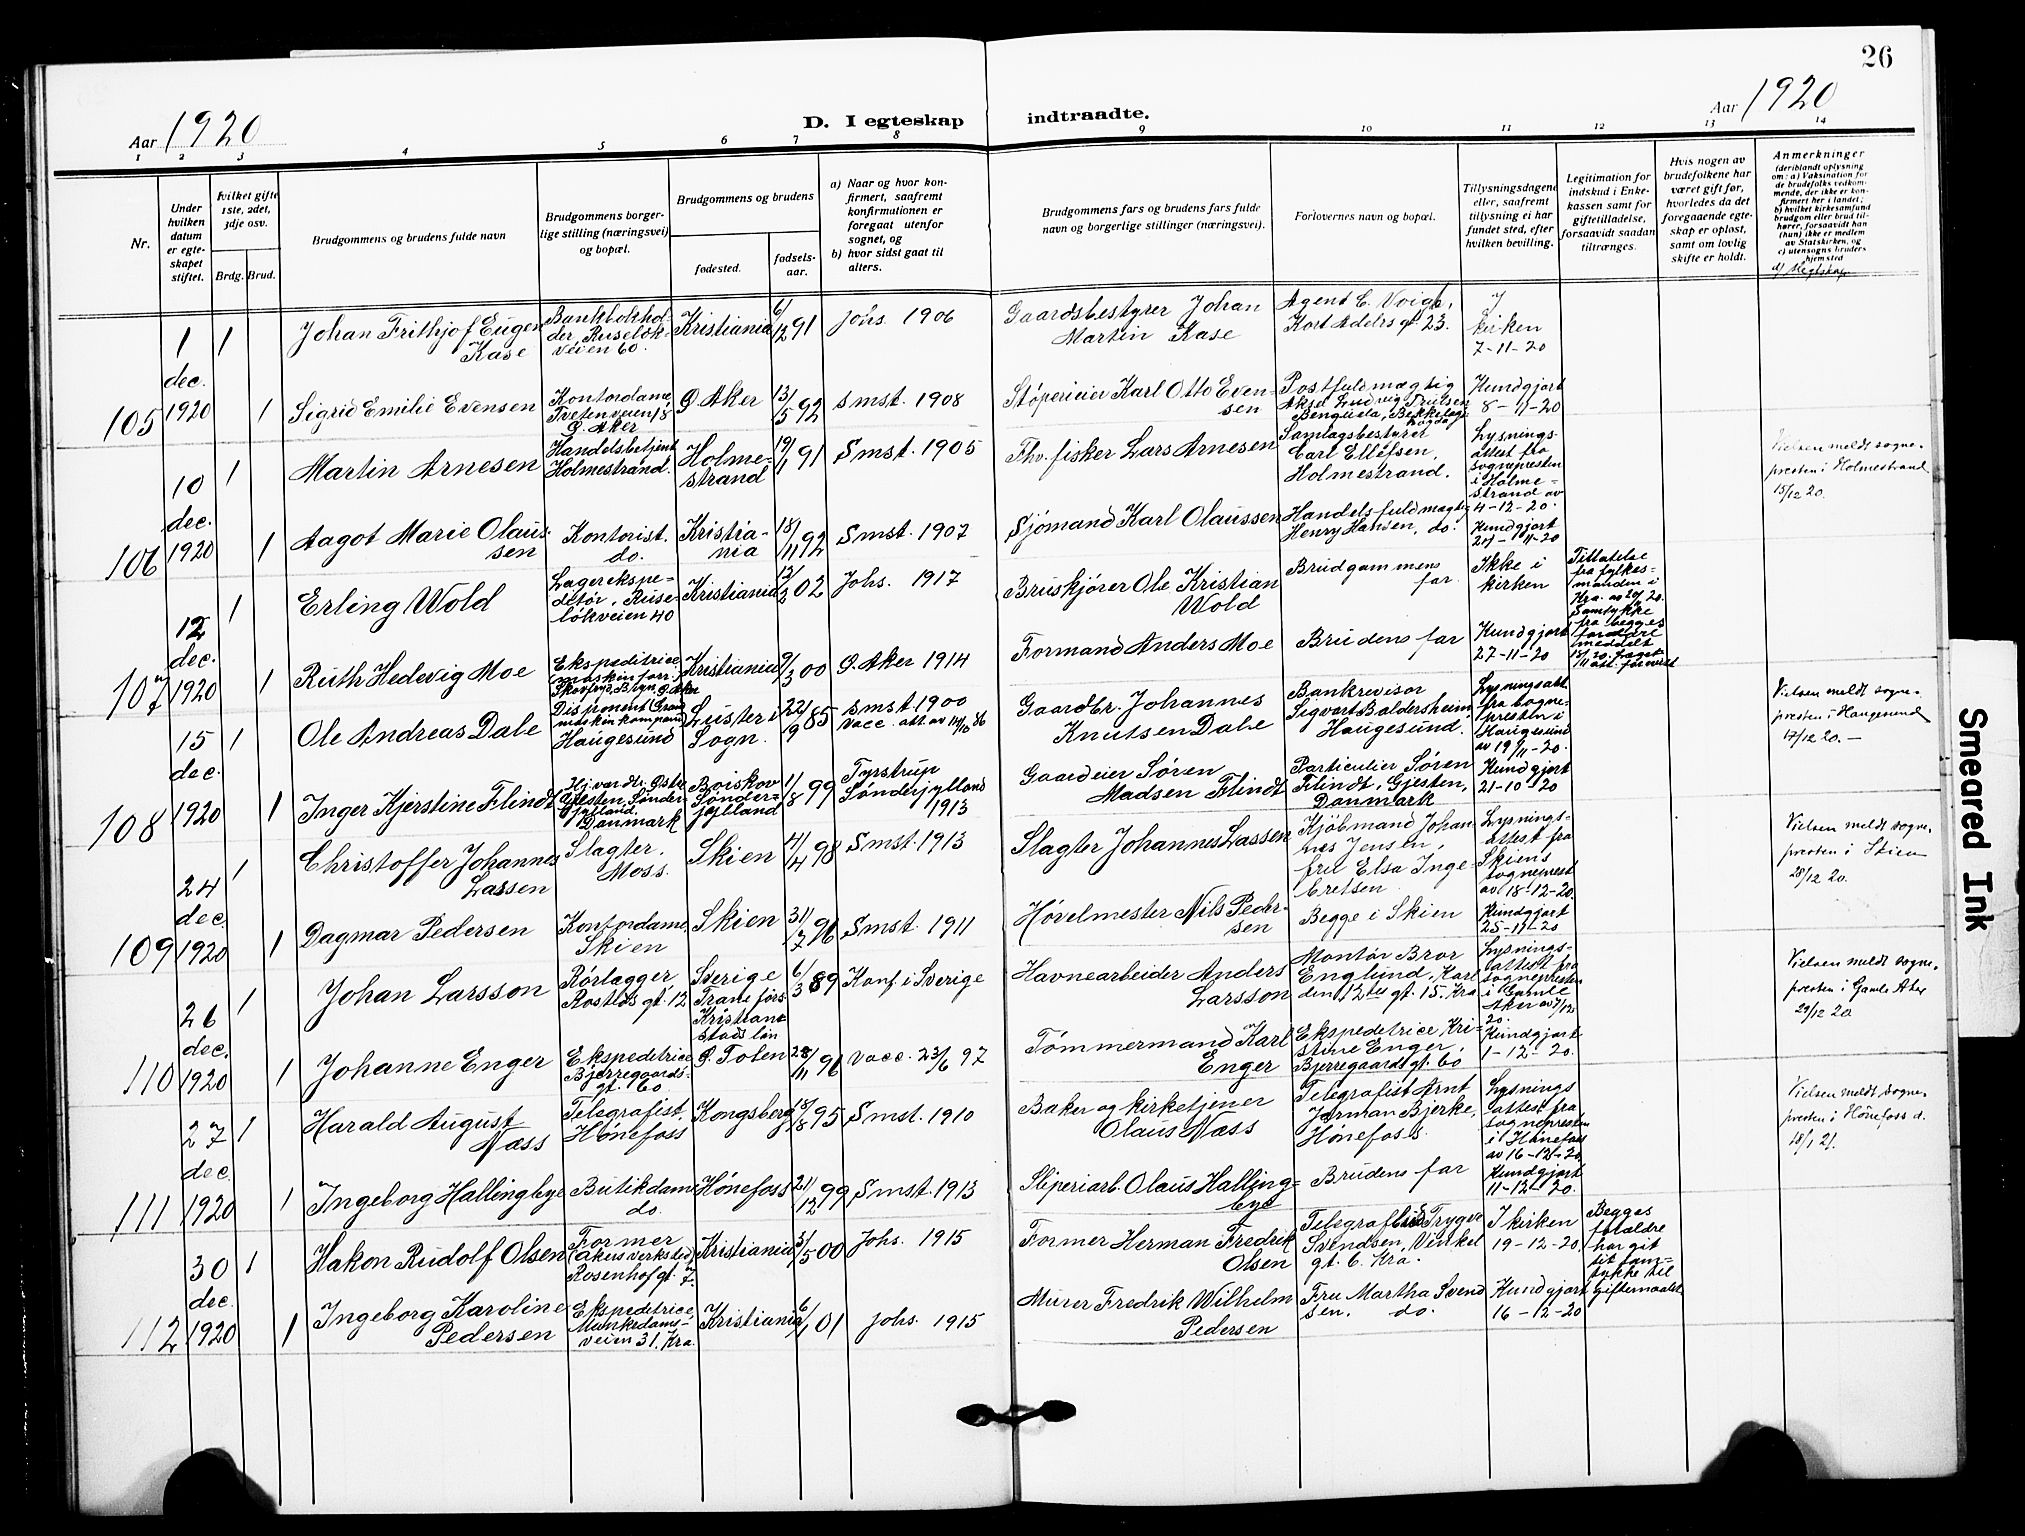 26
Aar 1920
D. I egteskap indtraadte.
Aar 1920
1 2 3 4 5 6 7 8 9 10 11 12 13 14
Nr.
Under hvilken datum er egteskapet stiftet.
Hvilket gifte 1ste, 2det, 3dje osv.
Brdg. Brud.
Brudgommens og brudens fulde navn
Brudgommens borgerlige stilling (næringsvei) og bopæl.
Brudgommens og brudens
fødested.
fødselsaar.
a) Naar og hvor konfirmert, saafremt konfirmationen er foregaat utenfor sognet, og
b) hvor sidst gaat til alters.
Brudgommens fars og brudens fars fulde navn og borgerlige stillinger (næringsvei).
Forlovernes navn og bopæl.
Tillysningsdagene eller, saafremt tillysning ei har fundet sted, efter hvilken bevilling.
Legitimation for indskud i Enkekassen samt for giftetilladelse, forsaavidt saadan tiltrænges.
Hvis nogen av brudefolkene har været gift før, hvorledes da det foregaaende egteskap er opløst, samt om lovlig skifte er holdt.
Anmerkninger
(deriblandt oplysning om: a) Vaksination for de brudefolks vedkommende, der ikke er konfirmert her i landet; b) hvilket kirkesamfund brudgom eller brud tilhører, forsaavidt han (hun) ikke er medlem av Statskirken, og c) utensogns bruders hjemsted
105
1 dec. 1920
1 Johan Frithjof Eugen Kase
Bankbokholder, Ruseløkveien 60.
Kristiania 6/12 91
Johs. 1906
Gaardsbestyrer Johan Martin Kase
Agent C. Voigt, Kort Adelrs gt. 23.
I kirken 7-11-20
1 Sigrid Emilie Evensen
Kontordame Tvetenveien 18 Ø. Aker
Ø Aker 13/5 92
Smst. 1908
Støperieier Karl Otto Evensen
Postfuldmægtig Aksel Ludvig Trulsen
Kundgjort 8-11-20
106
10 dec. 1920
1 Martin Arnesen
Handelsbetjent Holmestrand.
Holmestrand 19/1 91
Smst. 1905
Fhv. fisker Lars Arnesen
Samlagsbestyrer Carl Ellefsen, Holmestrand.
Lysningsattest fra sognepresten i Holmestrand av 4-12-20.
Vielsen meldt sognepresten i Holmestrand 15/12 20.
1 Aagot Marie Olaussen
Kontorist. do.
Kristiania 18/11 92
Smst. 1907
Sjømand Karl Olaussen
Handelsfuldmægtig Henry Hansen, do.
Kundgjort 24-11-20
107
12 dec. 1920
1 Erling Wold
Lagerekspeditør, Ruseløkveien 40
Kristiania 02
Johs. 1917
Bruskjører Ole Kristian Wold
Brudgommens far.
Ikke i kirken
Tillatelse fra fylkesmanden i Kra. av 20. Samtykke fra begges foreldre meddelt
1 Ruth Hedevig Moe
Ekspeditrice
Kristiania 9/3 00
Ø. Aker 1914
Formand Anders Moe
Brudens far
Kundgjort 27-11-20
108
15 dec. 1920
1 Ole Andreas Dale
Disponent (Gran maskinkompani) Haugesund
Luster i Sogn. 22/9 85
smst. 1900 vacc. att. av 14/10 86
Gaardbr. Johannes Knutsen Dale
Bankrevisor Sigvart Baldersheim, Haugesund.
Lysningsatt. fra sognepresten i Haugesund av 19/11-20.
Vielsen meldt sognepresten i Haugesund 17/12 20.-
1 Inger Kjerstine Flindt
Hj. var. dr. Østre Gjesten, Sønderjylland, Danmark
Boiskov Sønderjylland 1/8 99
Tyrstrup Sønderjylland 1913
Gaardeier Søren Madsen Flindt
Particulier Søren Flindt, Gjesten, Danmark
Kundgjort 21-10-20
109
24 dec. 1920
1 Christoffer Johannes Lassen
Slagter, Moss.
Skien 4/4 98
Smst. 1913
Slagter Johannes Lassen
Kjøbmand Johannes Jensen, frk Elsa Ingebretsen
Lysningsattest fra Skiens sogneprest av 18-12-20.
Vielsen meldt sognepresten i Skien 28/12 20.
1 Dagmar Pedersen
Kontordame, Skien
Skien 31/7 96
Smst. 1911
Høvelmester Nils Pedersen
Begge i Skien
Kundgjort 25-11-20
110
26 dec. 1920
1 Johan Larsson
Rørlægger Rosteds gt. 12
Sverige Trane førs. Kristianstads län 6/3 89
Konf. i Sverige
Havnearbeider Anders Larsson
Montør Bror Englund, Karl den 12tes gt. 15. Kra.
Lysningsattest fra sognepresten i Gamle Aker av 7/12 20.
Vielsen meldt sognepresten i Gamle Aker 29/12 20
1 Johanne Enger
Ekspeditrice Bjerregaards gt. 60
Ø. Toten 28/11 96
vacc. 23/6 97
Tømmermand Karl Enger
Ekspeditrice Kristine Enger, Bjerregaards gt. 60
Kundgjort 1-12-20.
111
27 dec. 1920
1 Harald August Næss
Telegrafist, Hønefoss
Kongsberg 18/8 95
Smst. 1910
Baker og kirketjener Olaus Næss
Telegrafist Arnt Jørman Bjerke, Hønefoss.
Lysningsattest fra sognepresten i Hønefoss av 16-12-20.
Vielsen meldt sognepresten i Hønefoss d. 18/1 21.
1 Ingeborg Hallingbye
Butikdame do.
Hønefoss 21/12 99
Smst. 1913
Sliperiarb. Olaus Hallingbye
Brudens far
Kundgjort 11-12-20.
112
30 dec. 1920
1 Hakon Rudolf Olsen
Former (Akers verksted) Rosenhofgt. 7.
Kristiania 31/5 00
Johs. 1915
Former Herman Fredrik Olsen
Telegrafbud Trygve Svendsen, Vinkelgt. 6. Kra.
I kirken 19-12-20.
Begges forældre har git sit samtykke til giftermaalet
1 Ingeborg Karoline Pedersen
Ekspeditrice, Munkedamsveien 31. Kra.
Kristiania 6/1 01
Johs. 1915
Murer Fredrik Wilhelm Pedersen
Fru Martha Svendsen, do.
Kundgjort 16-12-20
Smeared Ink